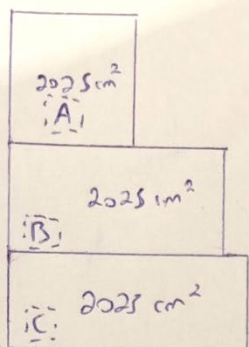 2025 cm²
A
2025 cm²
B
2025 cm²
C